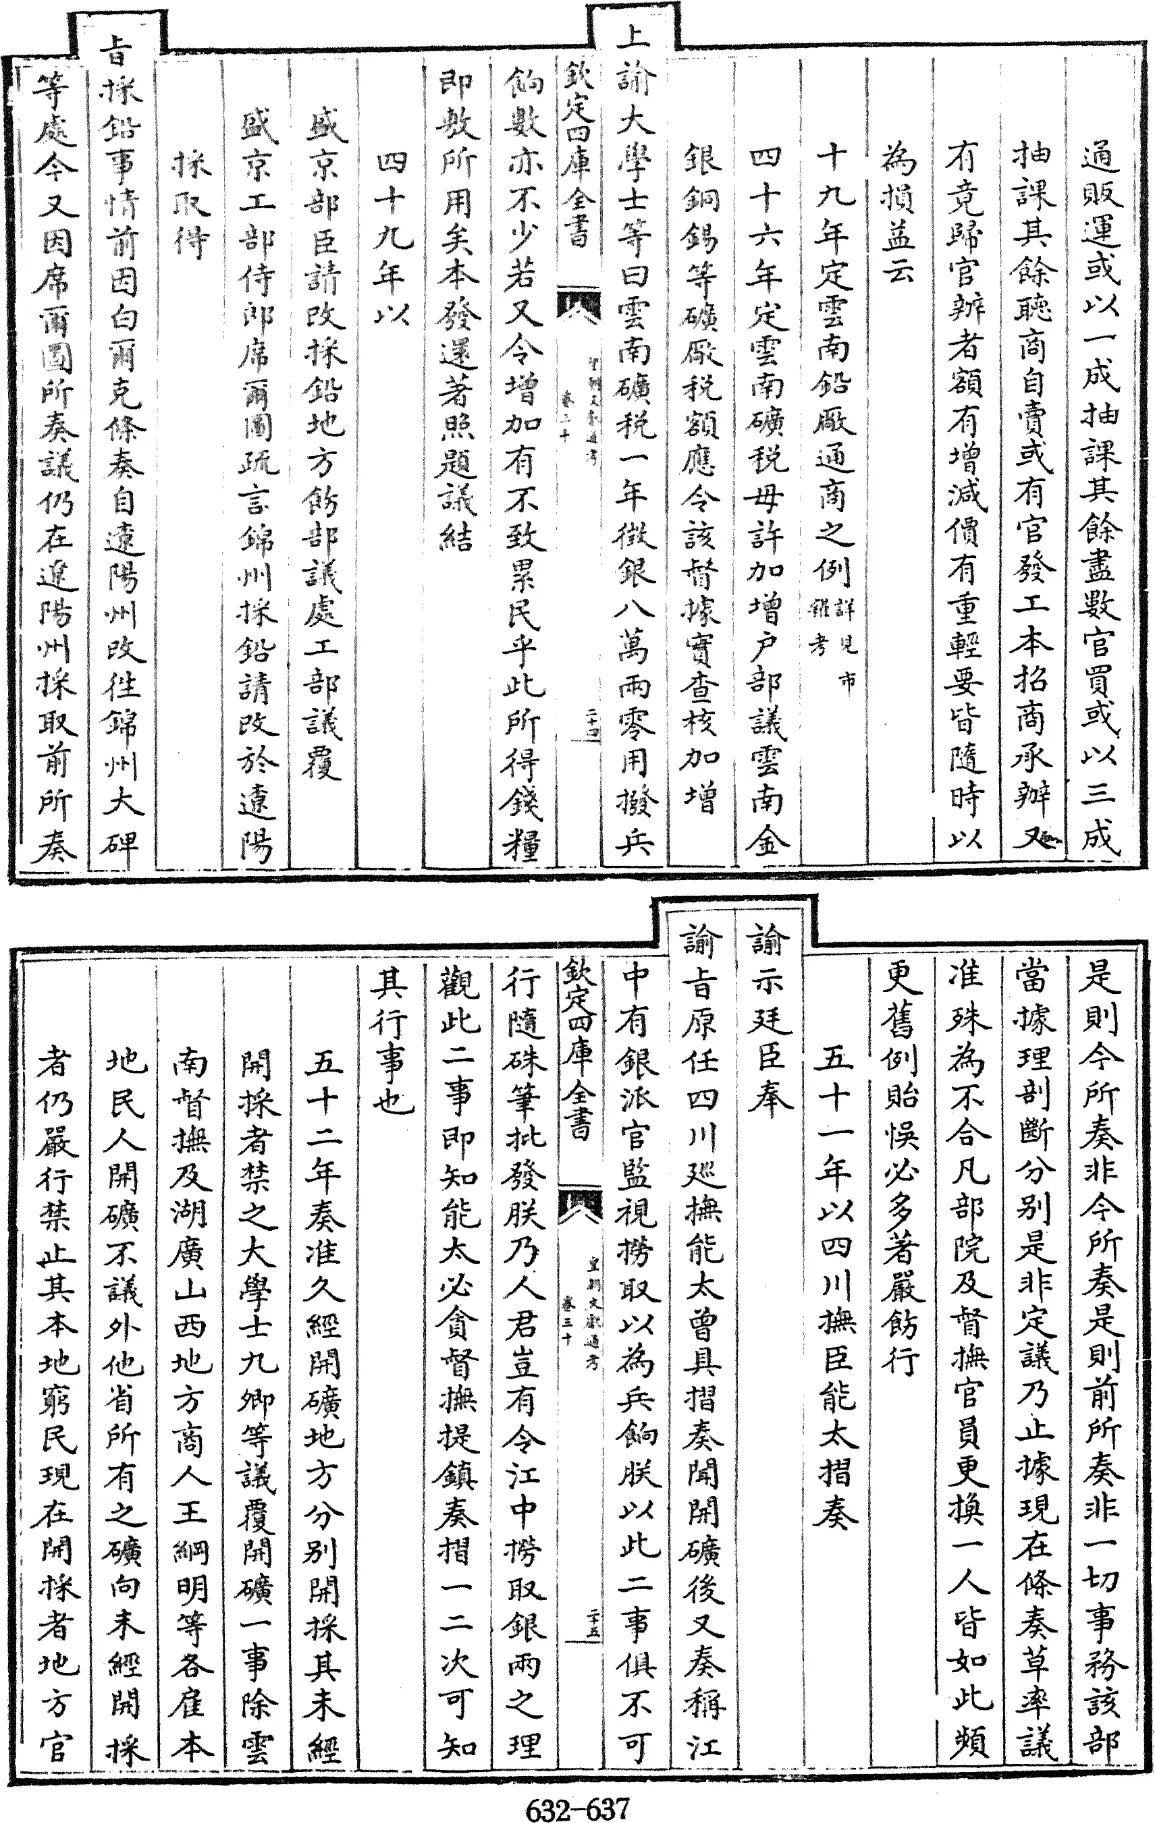 通販運或以一成抽課其餘盡數官買或以三成
抽課其餘聽商自賣或有官發工本招商承辦又
有竟歸官辦者額有增減價有重輕要皆隨時以
為損益云
十九年定雲南鉛廠通商之例詳見市
糴考
四十六年定雲南礦税毋許加增户部議雲南金
銀銅錫等礦廠税額應令該督據實查核加增
上諭大學士等曰雲南礦税一年徵銀八萬兩零用撥兵
欽定四庫全書
皇朝文獻通考
卷三十
二十四
餉數亦不少若又令增加有不致累民乎此所得錢糧
即敷所用矣本發還著照題議結
四十九年以
盛京部臣請改採鉛地方飭部議處工部議覆
盛京工部侍郎席爾圖疏言錦州採鉛請改於遼陽
採取得
旨採鉛事情前因白爾克條奏自遼陽州改徃錦州大碑
等處今又因席爾圖所奏議仍在遼陽州採取前所奏
是則今所奏非今所奏是則前所奏非一切事務該部
當據理剖斷分别是非定議乃止據現在條奏草率議
准殊為不合凡部院及督撫官員更換一人皆如此頻
更舊例貽悞必多著嚴飭行
五十一年以四川撫臣能太摺奏
諭示廷臣奉
諭旨原任四川廵撫能太曾具摺奏聞開礦後又奏稱江
中有銀派官監視撈取以為兵餉朕以此二事俱不可
欽定四庫全書
皇朝文獻通考
卷三十
二十五
行隨硃筆批發朕乃人君豈有令江中撈取銀兩之理
觀此二事即知能太必貪督撫提鎮奏摺一二次可知
其行事也
五十二年奏准久經開礦地方分别開採其未經
開採者禁之大學士九卿等議覆開礦一事除雲
南督撫及湖廣山西地方商人王綱明等各雇本
地民人開礦不議外他省所有之礦向未經開採
者仍嚴行禁止其本地窮民現在開採者地方官
632-637